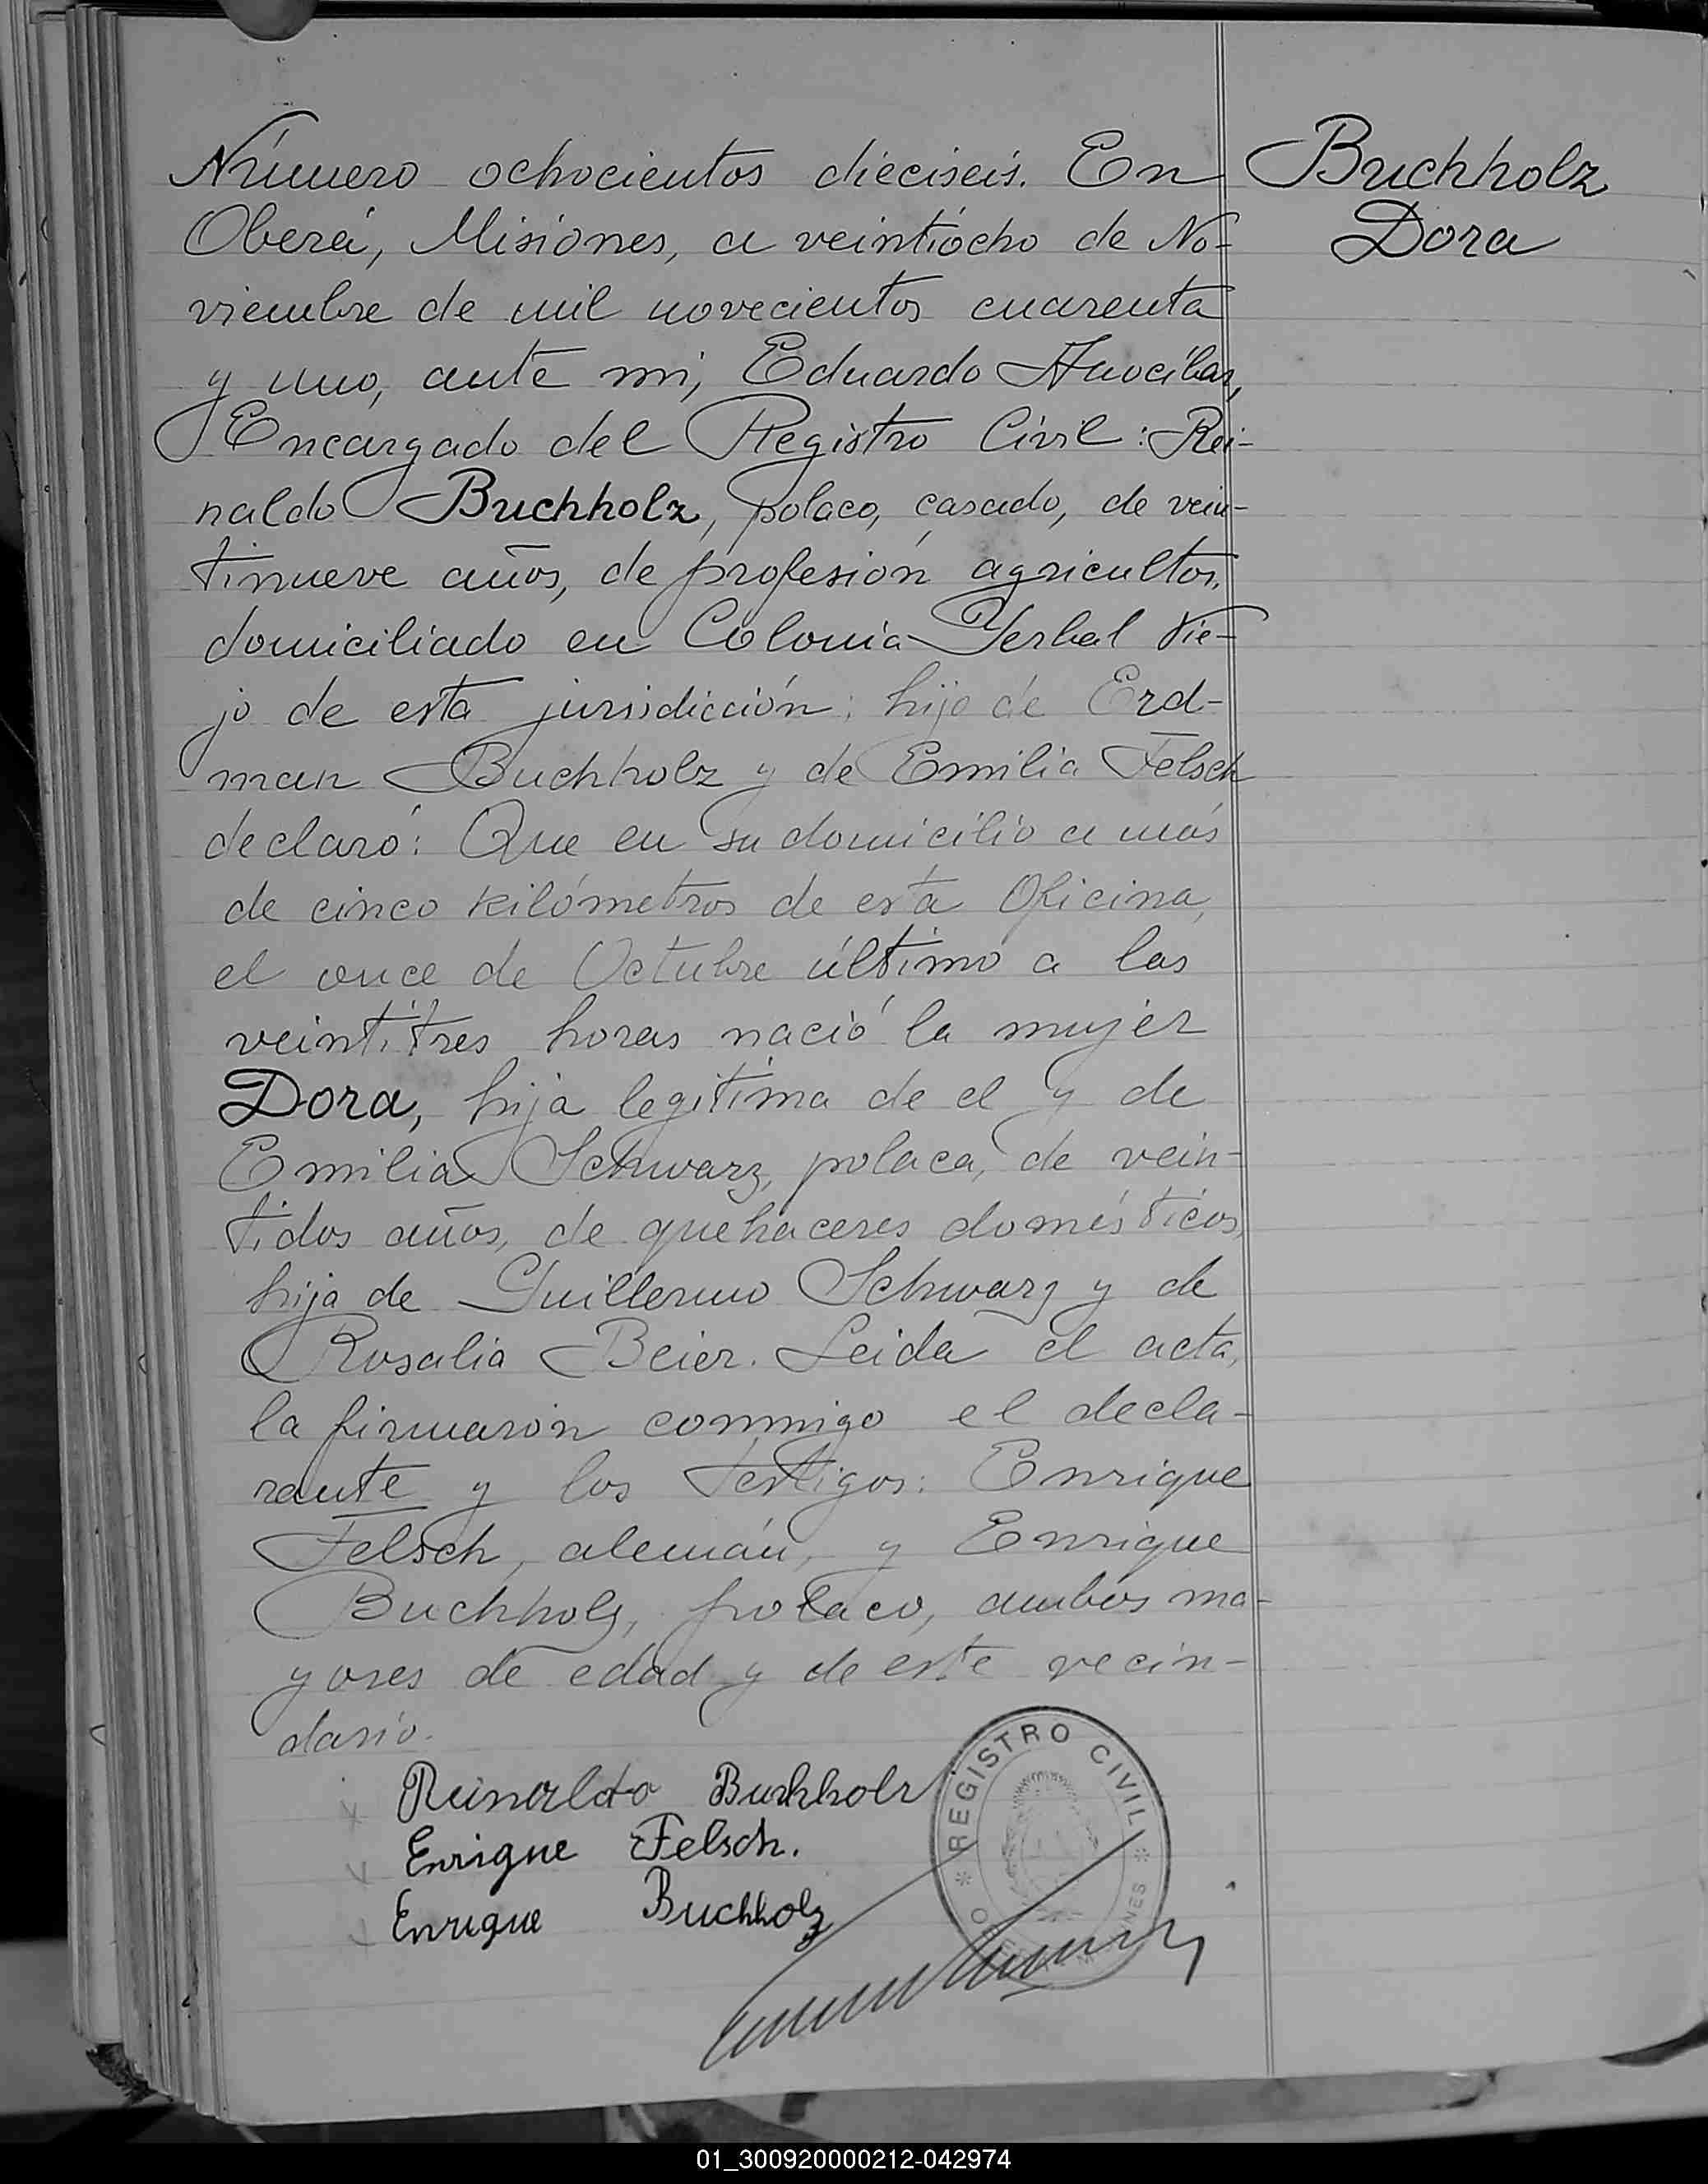 Número ochocientos dieciseis. En
Oberá, Misiones, a veintiocho de No-
viembre de mil novecientos cuarenta
y uno, ante mi, Eduardo
Encargado del Registro Civil: Rei-
naldo Buchholz, polaco, casado, de vein-
tinueve años, de profesión agricultor,
domiciliado en Colonia Yerbal Vie-
jo de esta jurisdicción; hijo de Erd-
man Buchholz y de Emilia Felsch
declaró: Que en su domicilio a más
de cinco kilómetros de esta Oficina,
el once de Octubre último a las
veintitres horas nació la mujer
Dora, hija legitima de el y de
Emilia Schwarz, polaca, de vein-
tidos años, de quehaceres domésticos,
hija de Guillermo Schwarz y de
Rosalia Beier. Leida el acta,
la firmaron conmigo el decla-
rante y los testigos: Enrique
Felsch, alemán, y Enrique
Buchholz, polaco, ambos ma-
yores de edad y de este vecin-
dario.
Buchholz
Dora
Reinaldo Buchholz
Enrique Felsch.
Enrique Buchholz
REGISTRO CIVIL
01_300920000212-042974